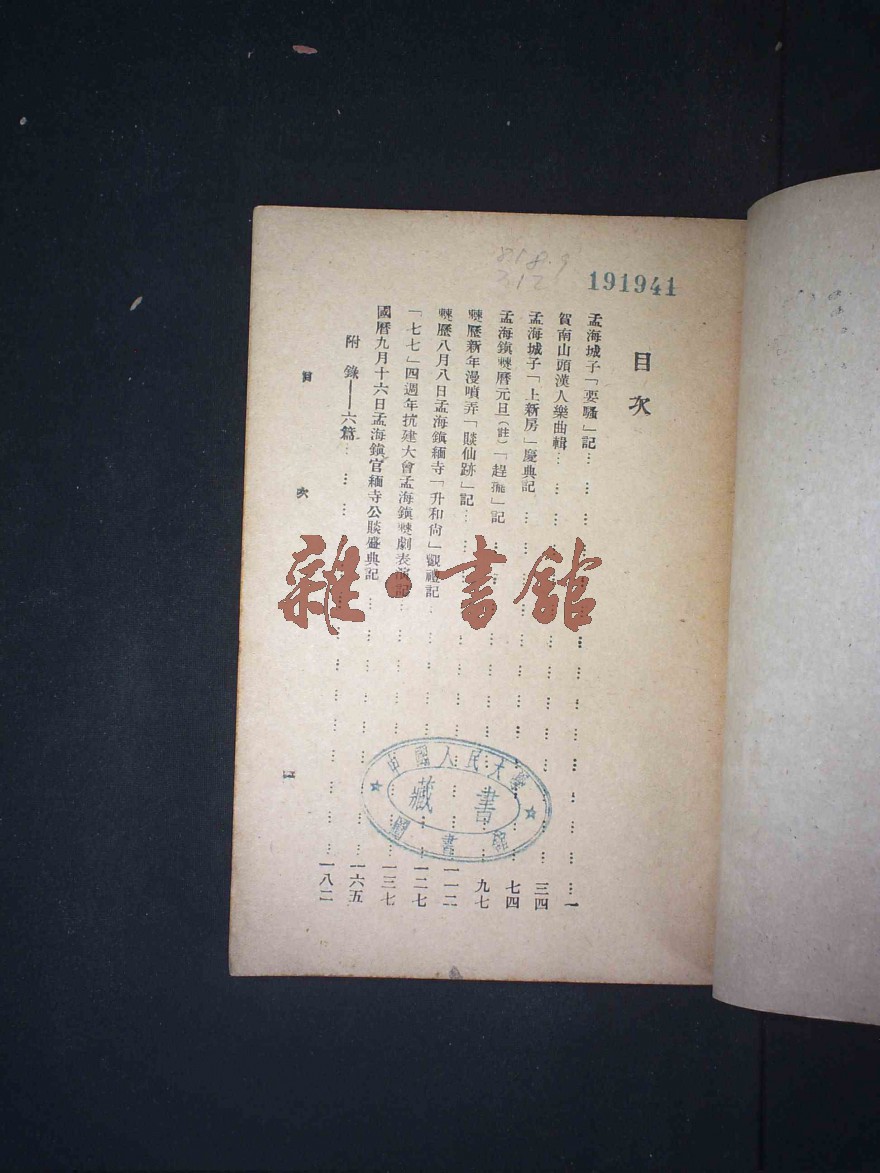 818.9
312
191941
目次
孟海城子「要騷」記…………一
賀南山頭漢人樂曲輯…………三四
孟海城子「上新房」慶典記…………七四
孟海鎮僰曆元旦(註)「趕擺」記…………九七
僰歷新年漫噴弄「賧仙跡」記…………一一二
僰歷八月八日孟海鎮緬寺「升和尙」觀禮記…………一二七
「七七」四週年抗建大會孟海鎮僰劇表演記…………一三七
國曆九月十六日孟海鎮官緬寺公賧盛典記…………一六五
附錄——六篇…………一八二
目 次
雜·書館
中國人民大學
藏書
圖書館